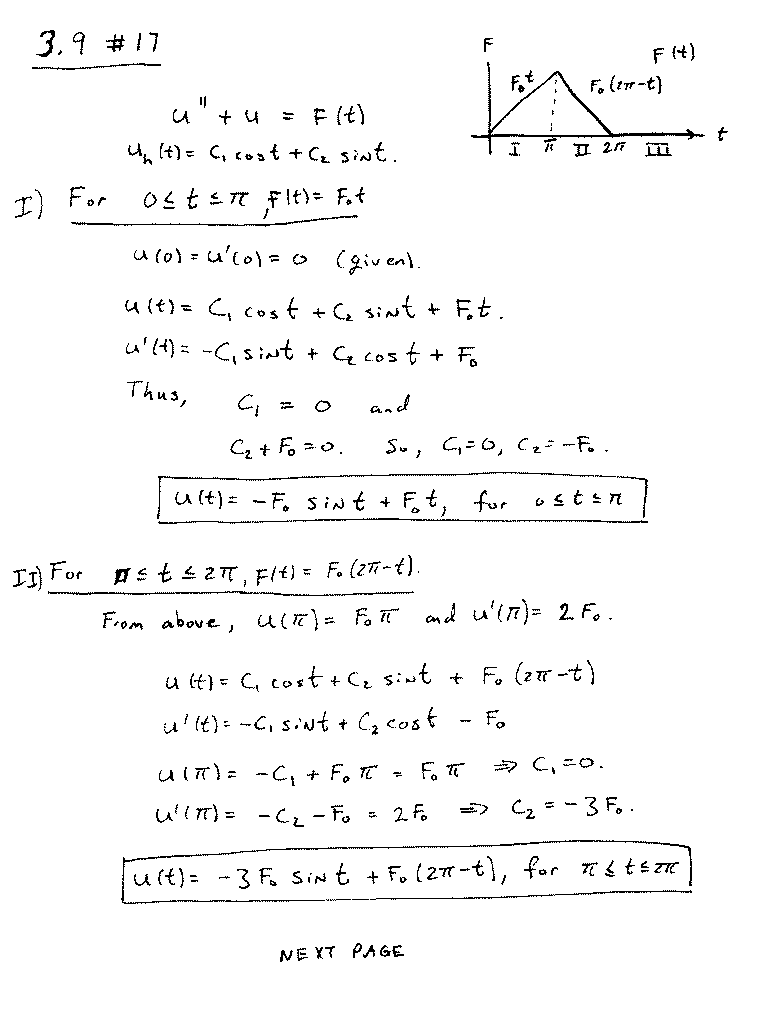 3.9 #17
F
F(t)
F₀t
F₀(2π-t)
I π II 2π III
t
u'' + u = F(t)
u_h(t) = C₁ cost + C₂ sint.
I) For 0 ≤ t ≤ π, F(t) = F₀t
u(0) = u'(0) = 0 (given).
u(t) = C₁ cost + C₂ sint + F₀t.
u'(t) = -C₁ sint + C₂ cost + F₀
Thus, C₁ = 0 and
C₂ + F₀ = 0. So, C₁=0, C₂ = -F₀.
u(t) = -F₀ sint + F₀t, for 0 ≤ t ≤ π
II) For π ≤ t ≤ 2π, F(t) = F₀(2π-t).
From above, u(π) = F₀π and u'(π) = 2F₀.
u(t) = C₁ cost + C₂ sint + F₀(2π-t)
u'(t) = -C₁ sint + C₂ cost - F₀
u(π) = -C₁ + F₀π = F₀π ⇒ C₁=0.
u'(π) = -C₂ - F₀ = 2F₀ ⇒ C₂ = -3F₀.
u(t) = -3F₀ sint + F₀(2π-t), for π ≤ t ≤ 2π
NEXT PAGE